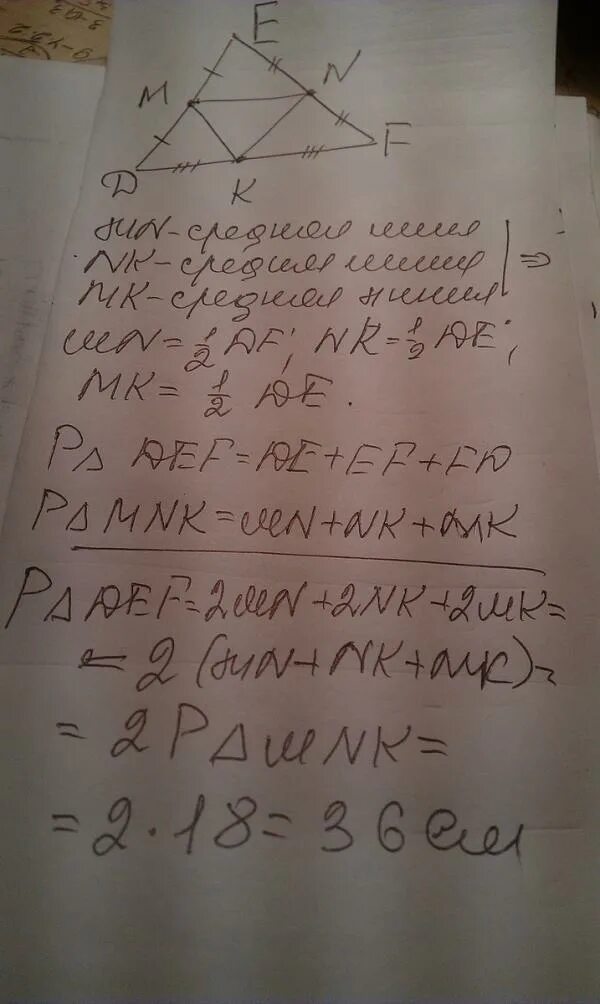 E
M
N
D
K
F
MN-средняя линия
NK-средняя линия
MK-средняя линия | ⇒
MN = 1/2 DF; NK = 1/2 DE;
MK = 1/2 DE.
P△ DEF = DE + EF + FD
P△ MNK = MN + NK + MK
P△ DEF = 2MN + 2NK + 2MK =
= 2 (MN + NK + MK) =
= 2P△MNK =
= 2 · 18 = 36 см